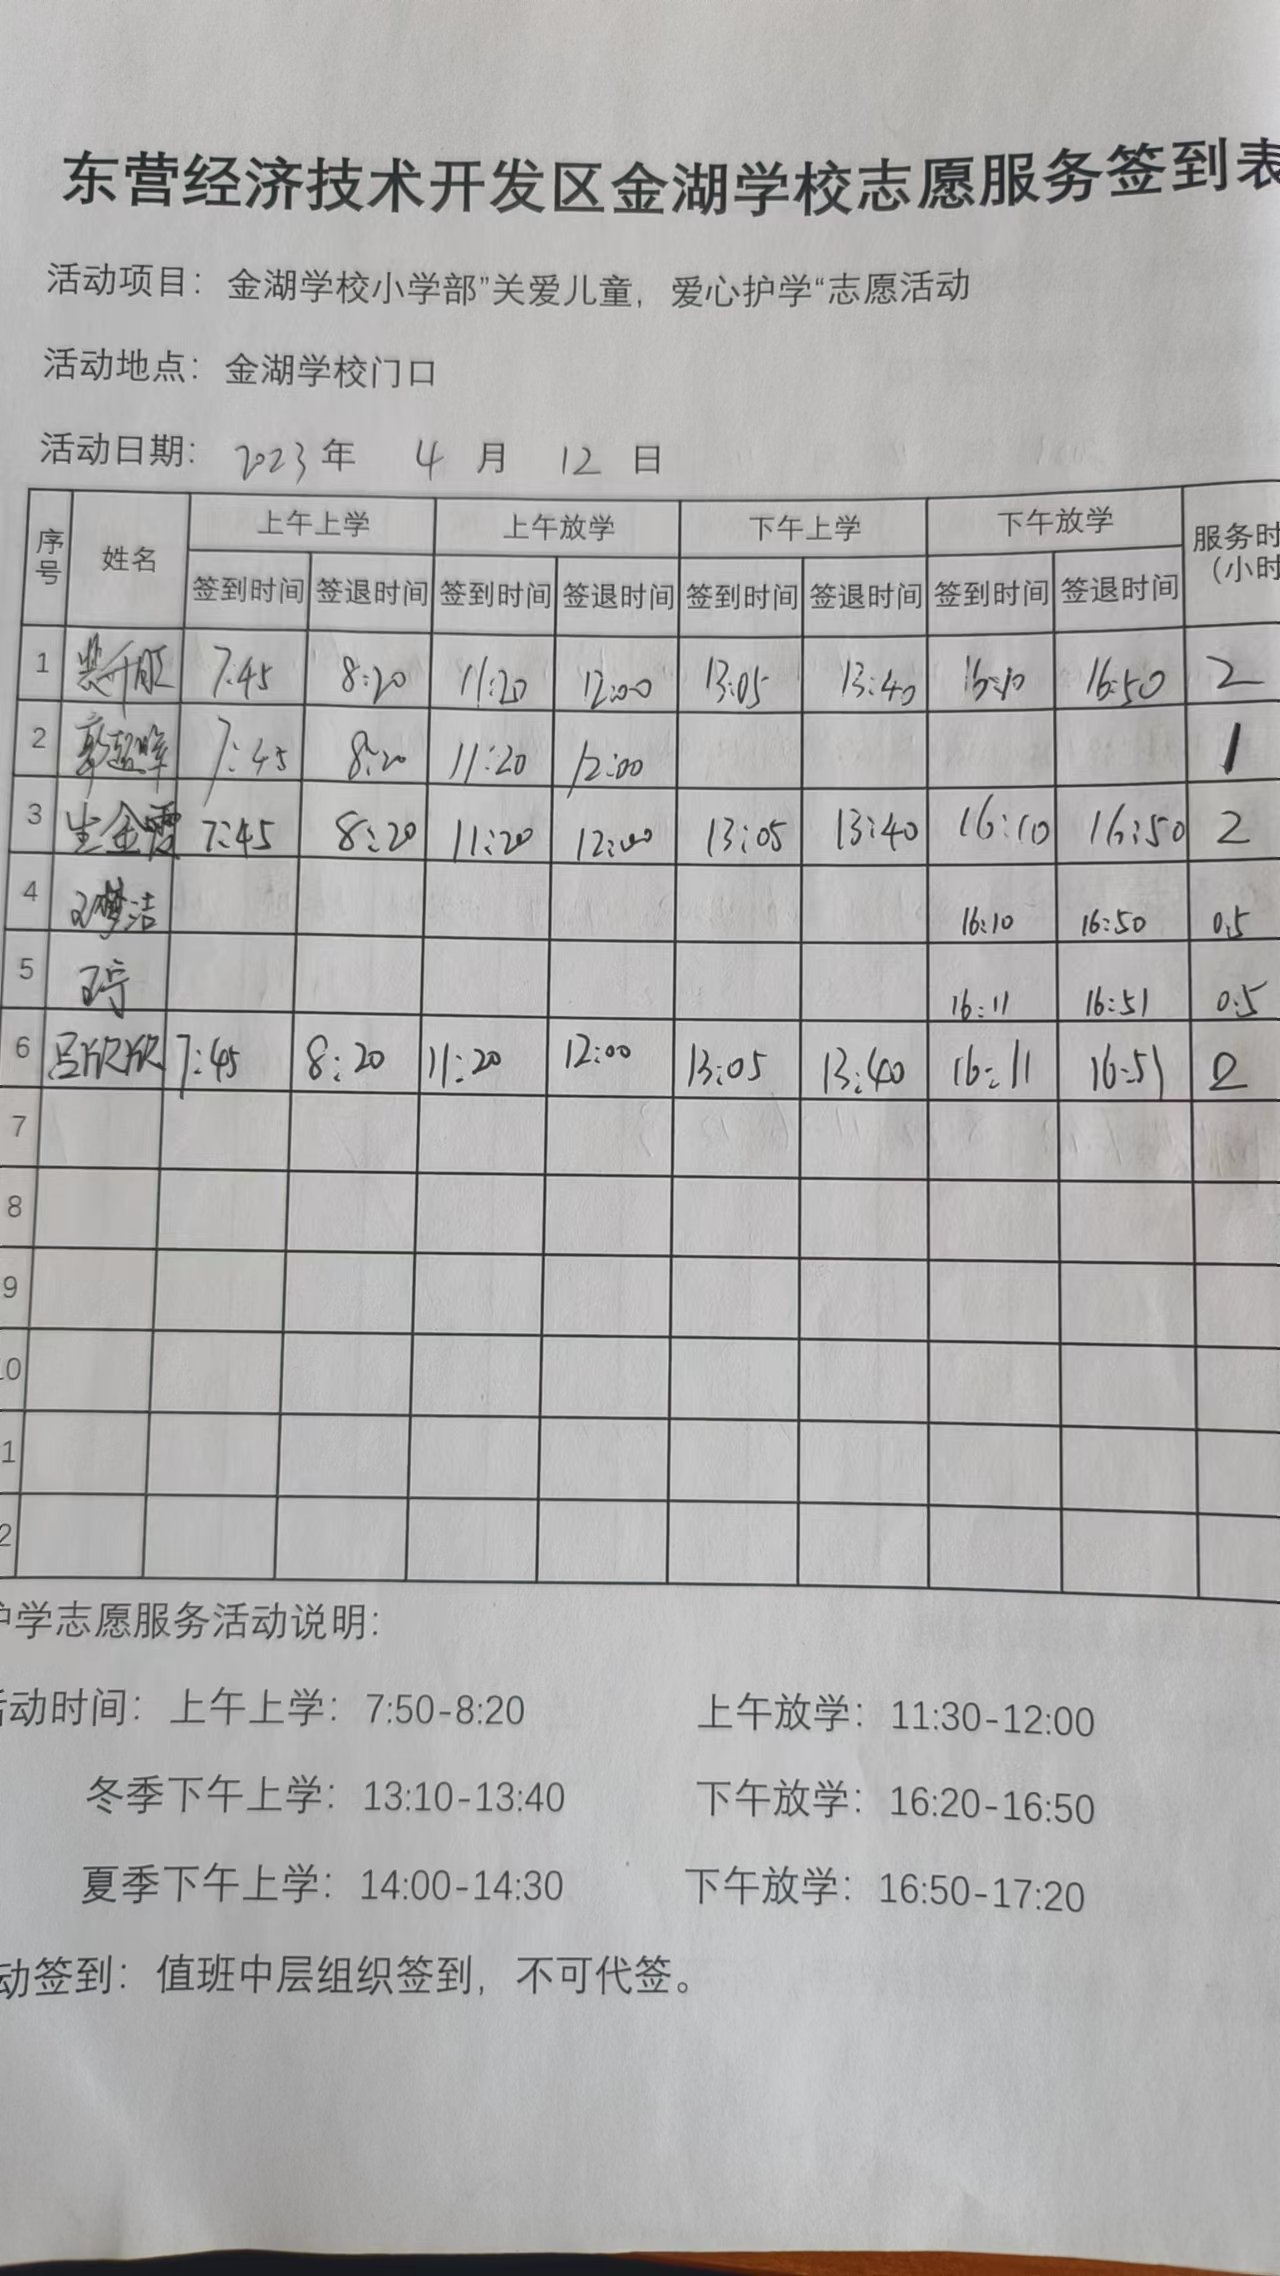 东营经济技术开发区金湖学校志愿服务签到表
活动项目：金湖学校小学部”关爱儿童，爱心护学“志愿活动
活动地点：金湖学校门口
活动日期：2023年 4月 12日
序号 姓名 上午上学 上午放学 下午上学 下午放学 服务时（小时
签到时间 签退时间 签到时间 签退时间 签到时间 签退时间 签到时间 签退时间
1 7:45 8:20 11:20 12:00 13:05 13:40 16:10 16:50 2
2 郭超峰 7:45 8:20 11:20 12:00 1
3 生金霞 7:45 8:20 11:20 12:00 13:05 13:40 16:10 16:50 2
4 王梦洁 16:10 16:50 0.5
5 王宁 16:11 16:51 0.5
6 吕欣欣 7:45 8:20 11:20 12:00 13:05 13:40 16:11 16:51 2
7
8
9
10
1
2
护学志愿服务活动说明：
活动时间：上午上学：7:50-8:20 上午放学：11:30-12:00
冬季下午上学：13:10-13:40 下午放学：16:20-16:50
夏季下午上学：14:00-14:30 下午放学：16:50-17:20
动签到：值班中层组织签到，不可代签。